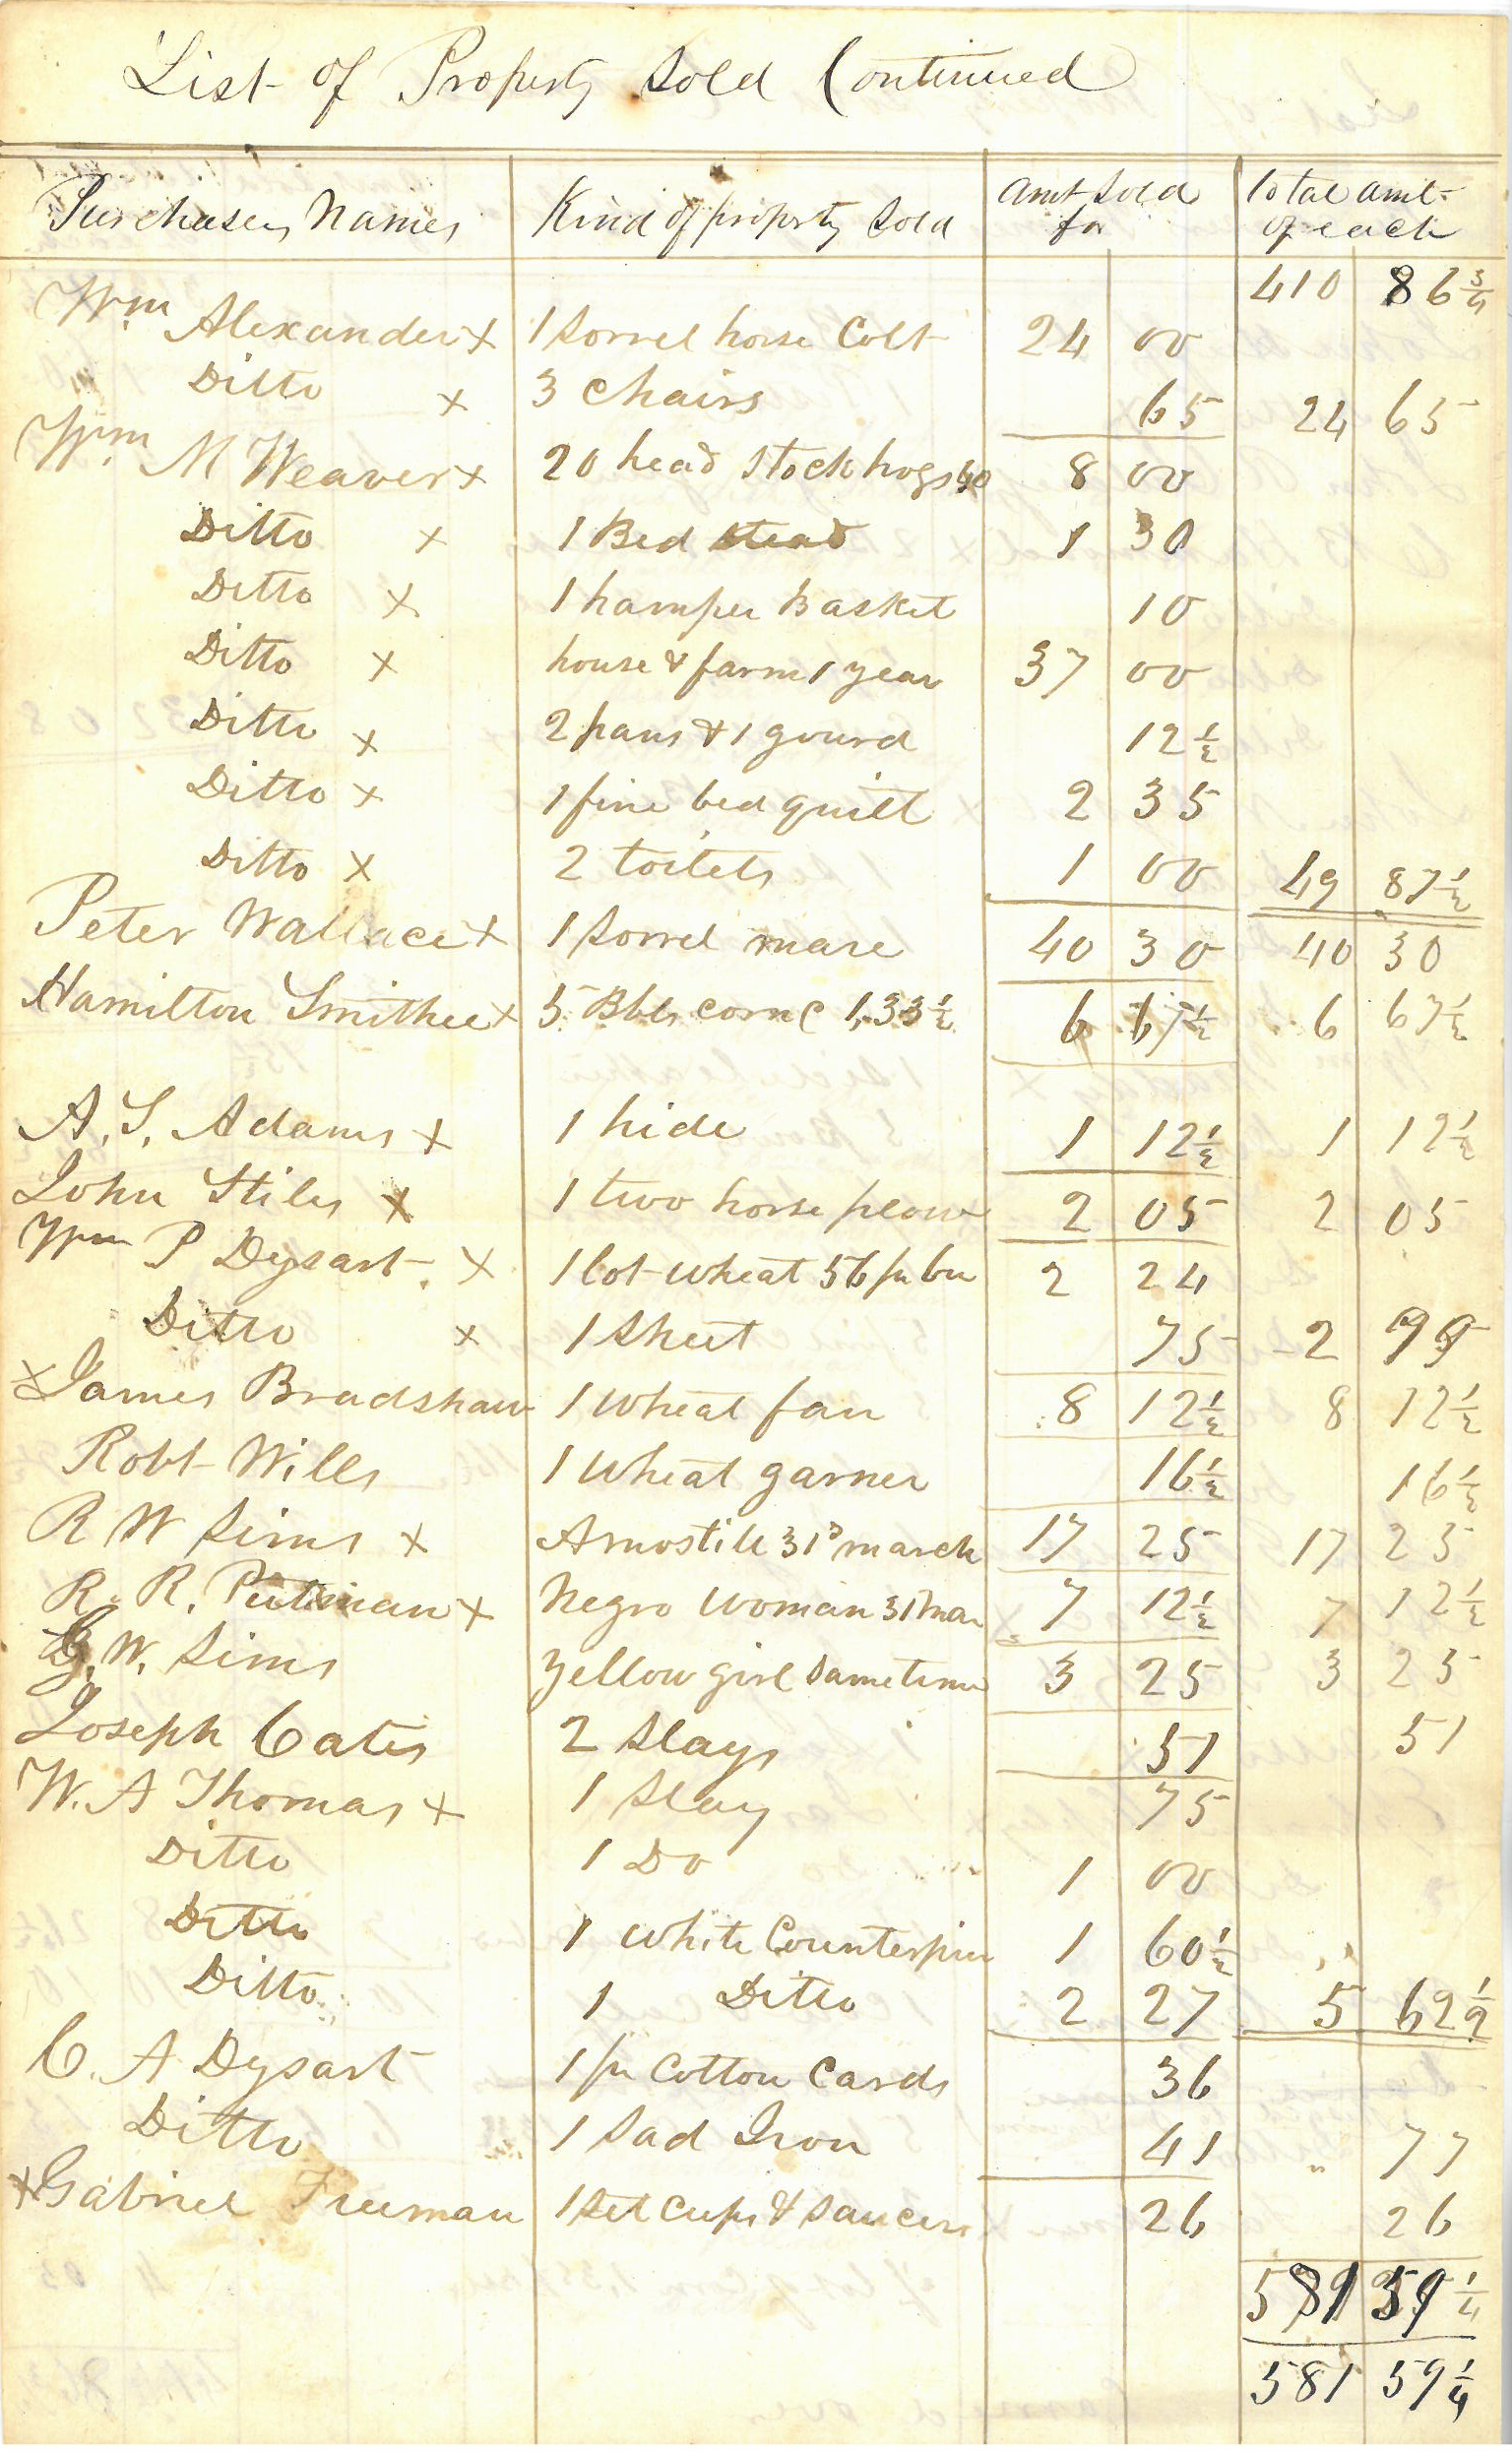 List of Property Sold Continued
Purchasers Names | Kind of property Sold | Amt Sold for | Total amt of each
410 86 3/4
Wm Alexander x | 1 Sorrel horse Colt | 24 00
Ditto x | 3 Chairs | 65 | 24 65
Wm M Weaver x | 20 head Stock hogs 40 | 8 00
Ditto x | 1 Bed stead | 1 30
Ditto x | 1 hamper Basket | 10
Ditto x | house & farm 1 year | 37 00
Ditto x | 2 pans & 1 gourd | 12 1/2
Ditto x | 1 fine bed quilt | 2 35
Ditto x | 2 toilets | 1 00 | 49 87 1/2
Peter Wallace x | 1 Sorrel mare | 40 30 | 40 30
Hamilton Smithee x | 5 Bbls corn C 1,33 1/2 | 6 67 1/2 | 6 67 1/2
A. S. Adams x | 1 hide | 1 12 1/2 | 1 12 1/2
John Stiles x | 1 two horse plow | 2 05 | 2 05
Wm P Dysart x | 1 lot wheat 56 pr bu | 2 24
Ditto x | 1 Sheet | 75 | 2 99
x James Bradshaw | 1 Wheat fan | 8 12 1/2 | 8 12 1/2
Robt Wills | 1 Wheat garner | 16 1/2 | 16 1/2
R W Sims x | Amos till 31st march | 17 25 | 17 25
R. R. Putman x | Negro Woman 31 Mar | 7 12 1/2 | 7 12 1/2
G. W. Sims | Yellow girl Same time | 3 25 | 3 25
Joseph Cates | 2 Slays | 51 | 51
W. A Thomas x | 1 Slay | 75
Ditto | 1 Do | 1 00
Ditto | 1 White Counterpin | 1 60 1/2
Ditto | 1 Ditto | 2 27 | 5 62 1/2
C. A Dysart | 1 pr Cotton Cards | 36
Ditto | 1 Sad Iron | 41 | " 77
x Gabriel Freeman | 1 Set Cups & Saucers | 26 | 26
581 59 1/4
581 59 1/4